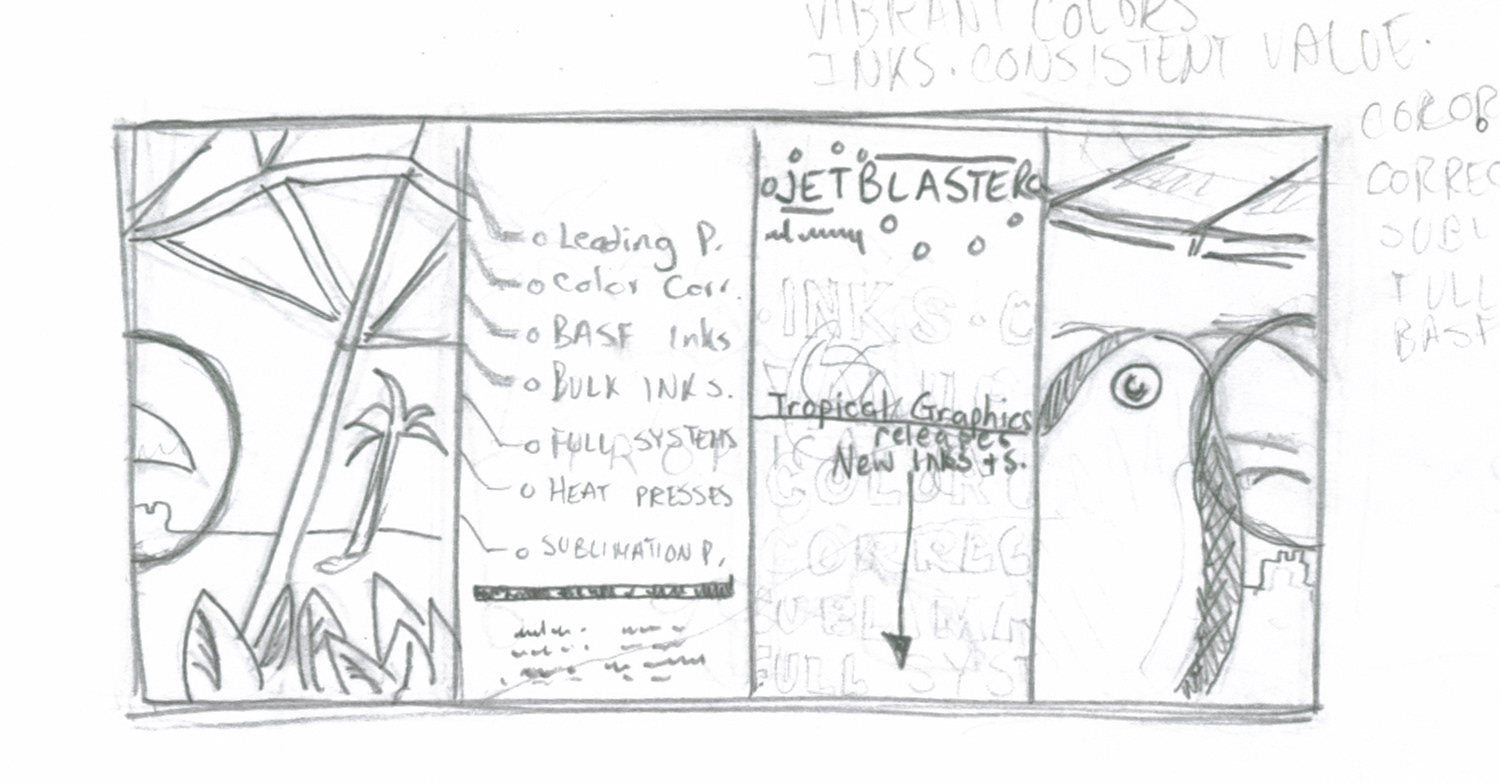 VIBRANT COLORS
INKS. CONSISTENT VALUE.
COROR
CORREC
SUBL
FULL
BASF
Leading P.
Color Corr.
BASF Inks
BULK INKS.
FULL SYSTEMS
HEAT PRESSES
SUBLIMATION P.
JETBLASTER
· INKS · C
Tropical Graphics
releases
New Inks + S.
COLOR
CORREC
SUBLIMA
FULL SYST